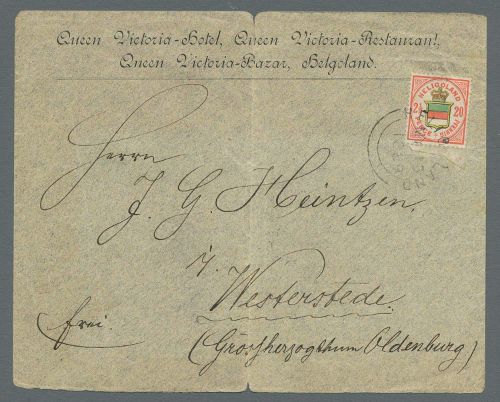 Queen Victoria-Hotel, Queen Victoria-Restaurant,
Queen Victoria-Bazar, Helgoland.
HELIGOLAND
2½ 20
PENCE PFENNIG
Herrn
J. G. Heintzen
i.
Westerstede.
frei.
(Grossherzogthum Oldenburg)